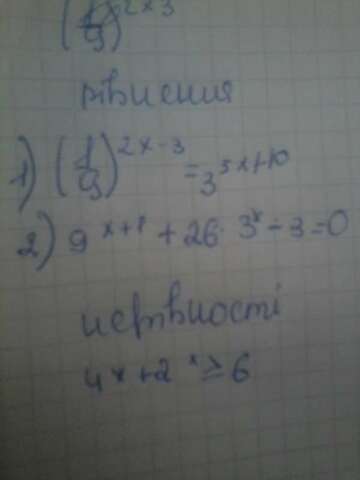 (1/9)^2x-3
рівняння
1) (1/9)^2x-3 = 3^5x+10
2) 9^x+1 + 26·3^x - 3 = 0
нерівності
4^x + 2^x ≥ 6